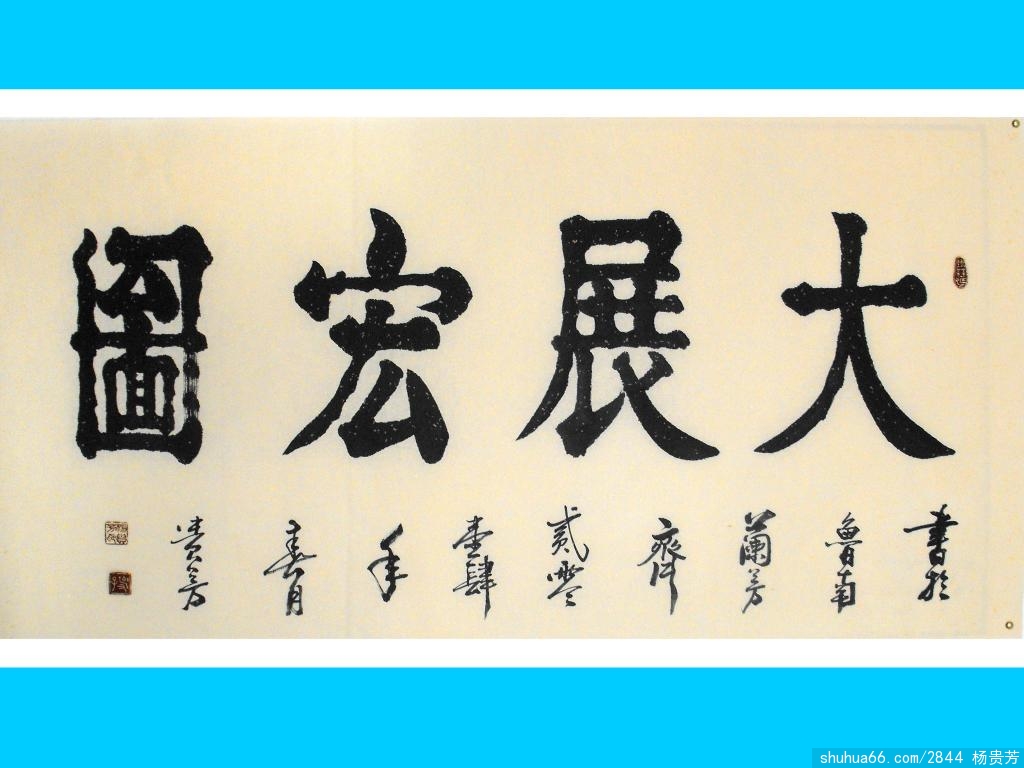 大展宏圖
書於魯南蘭芳齋貳零壹肆年春月貴芳
shuhua66.com/2844 杨贵芳